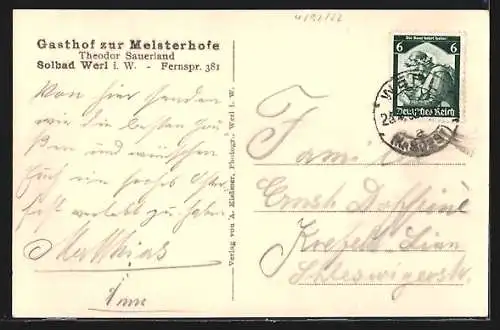 Gasthof zur Meisterhofe
Theodor Sauerland
Solbad Werl i. W. - Fernspr. 381
Von hier senden
wir die besten Grü
ßen und wünschen
Euch ein frohes Oster
fest verlebt zu haben
Matthias
Verlag von A. Kießener, Photogr., Werl i. W.
Die Saar kehrt heim!
6 6
Deutsches Reich
WERL
a
(KR. SOEST)
Familie
Ernst
Krefeld Linn
Schleswigerstr.